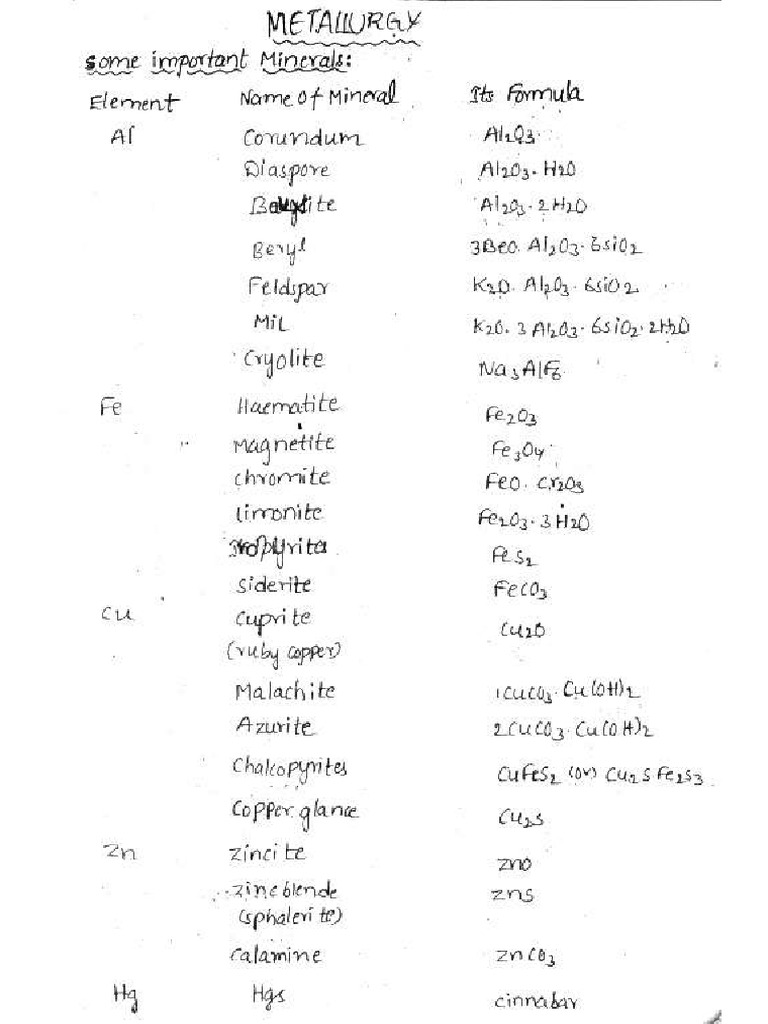 METALLURGY
some important Minerals:
Element Name Of Mineral Its Formula
Al Corundum Al2O3
Diaspore Al2O3.H2O
Al2O3.2H2O
Beryl 3BeO.Al2O3.6SiO2
Feldspar K2O.Al2O3.6SiO2
K2O.3Al2O3.6SiO2.2H2O
Cryolite Na3AlF6
Fe Haematite Fe2O3
Magnetite Fe3O4
chromite FeO.Cr2O3
limonite Fe2O3.3H2O
FeS2
Siderite FeCO3
Cu Cuprite Cu2O
(ruby copper)
Malachite CuCO3.Cu(OH)2
Azurite 2CuCO3.Cu(OH)2
Chalcopyrites CuFeS2 (or) Cu2S.Fe2S3
Copper glance Cu2S
Zn Zincite ZnO
zinc blende ZnS
(sphalerite)
calamine ZnCO3
Hg Hgs cinnabar